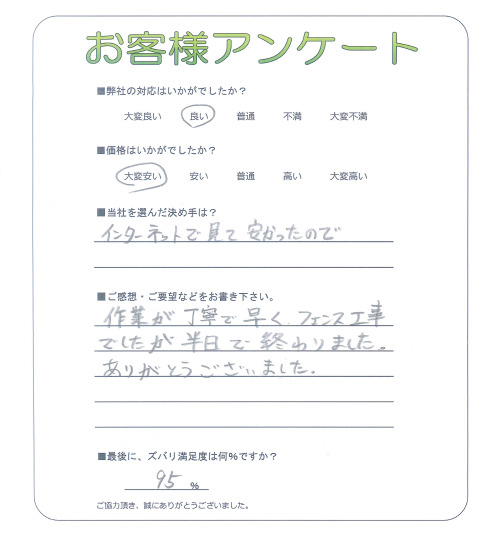 お客様アンケート
■弊社の対応はいかがでしたか？
大変良い 良い 普通 不満 大変不満
■価格はいかがでしたか？
大変安い 安い 普通 高い 大変高い
■当社を選んだ決め手は？
インターネットで見て 安かったので
■ご感想・ご要望などをお書き下さい。
作業が 丁寧で 早く、フェンス工事
でしたが 半日で 終わりました。
ありがとうございました。
■最後に、ズバリ満足度は何%ですか？
95 %
ご協力頂き、誠にありがとうございました。